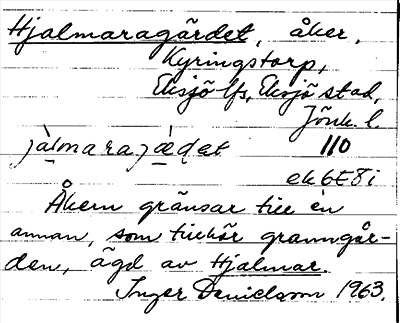 Hjalmaragärdet, åker,
Kyringstorp,
Eksjö lfs, Eksjö stad,
Jönk. l.
jàlmarajǽdet 110
ek6E8i
Åkern gränsar till en
annan, som tillhör granngår-
den, ägd av Hjalmar.
Inger Danielsson 1963.